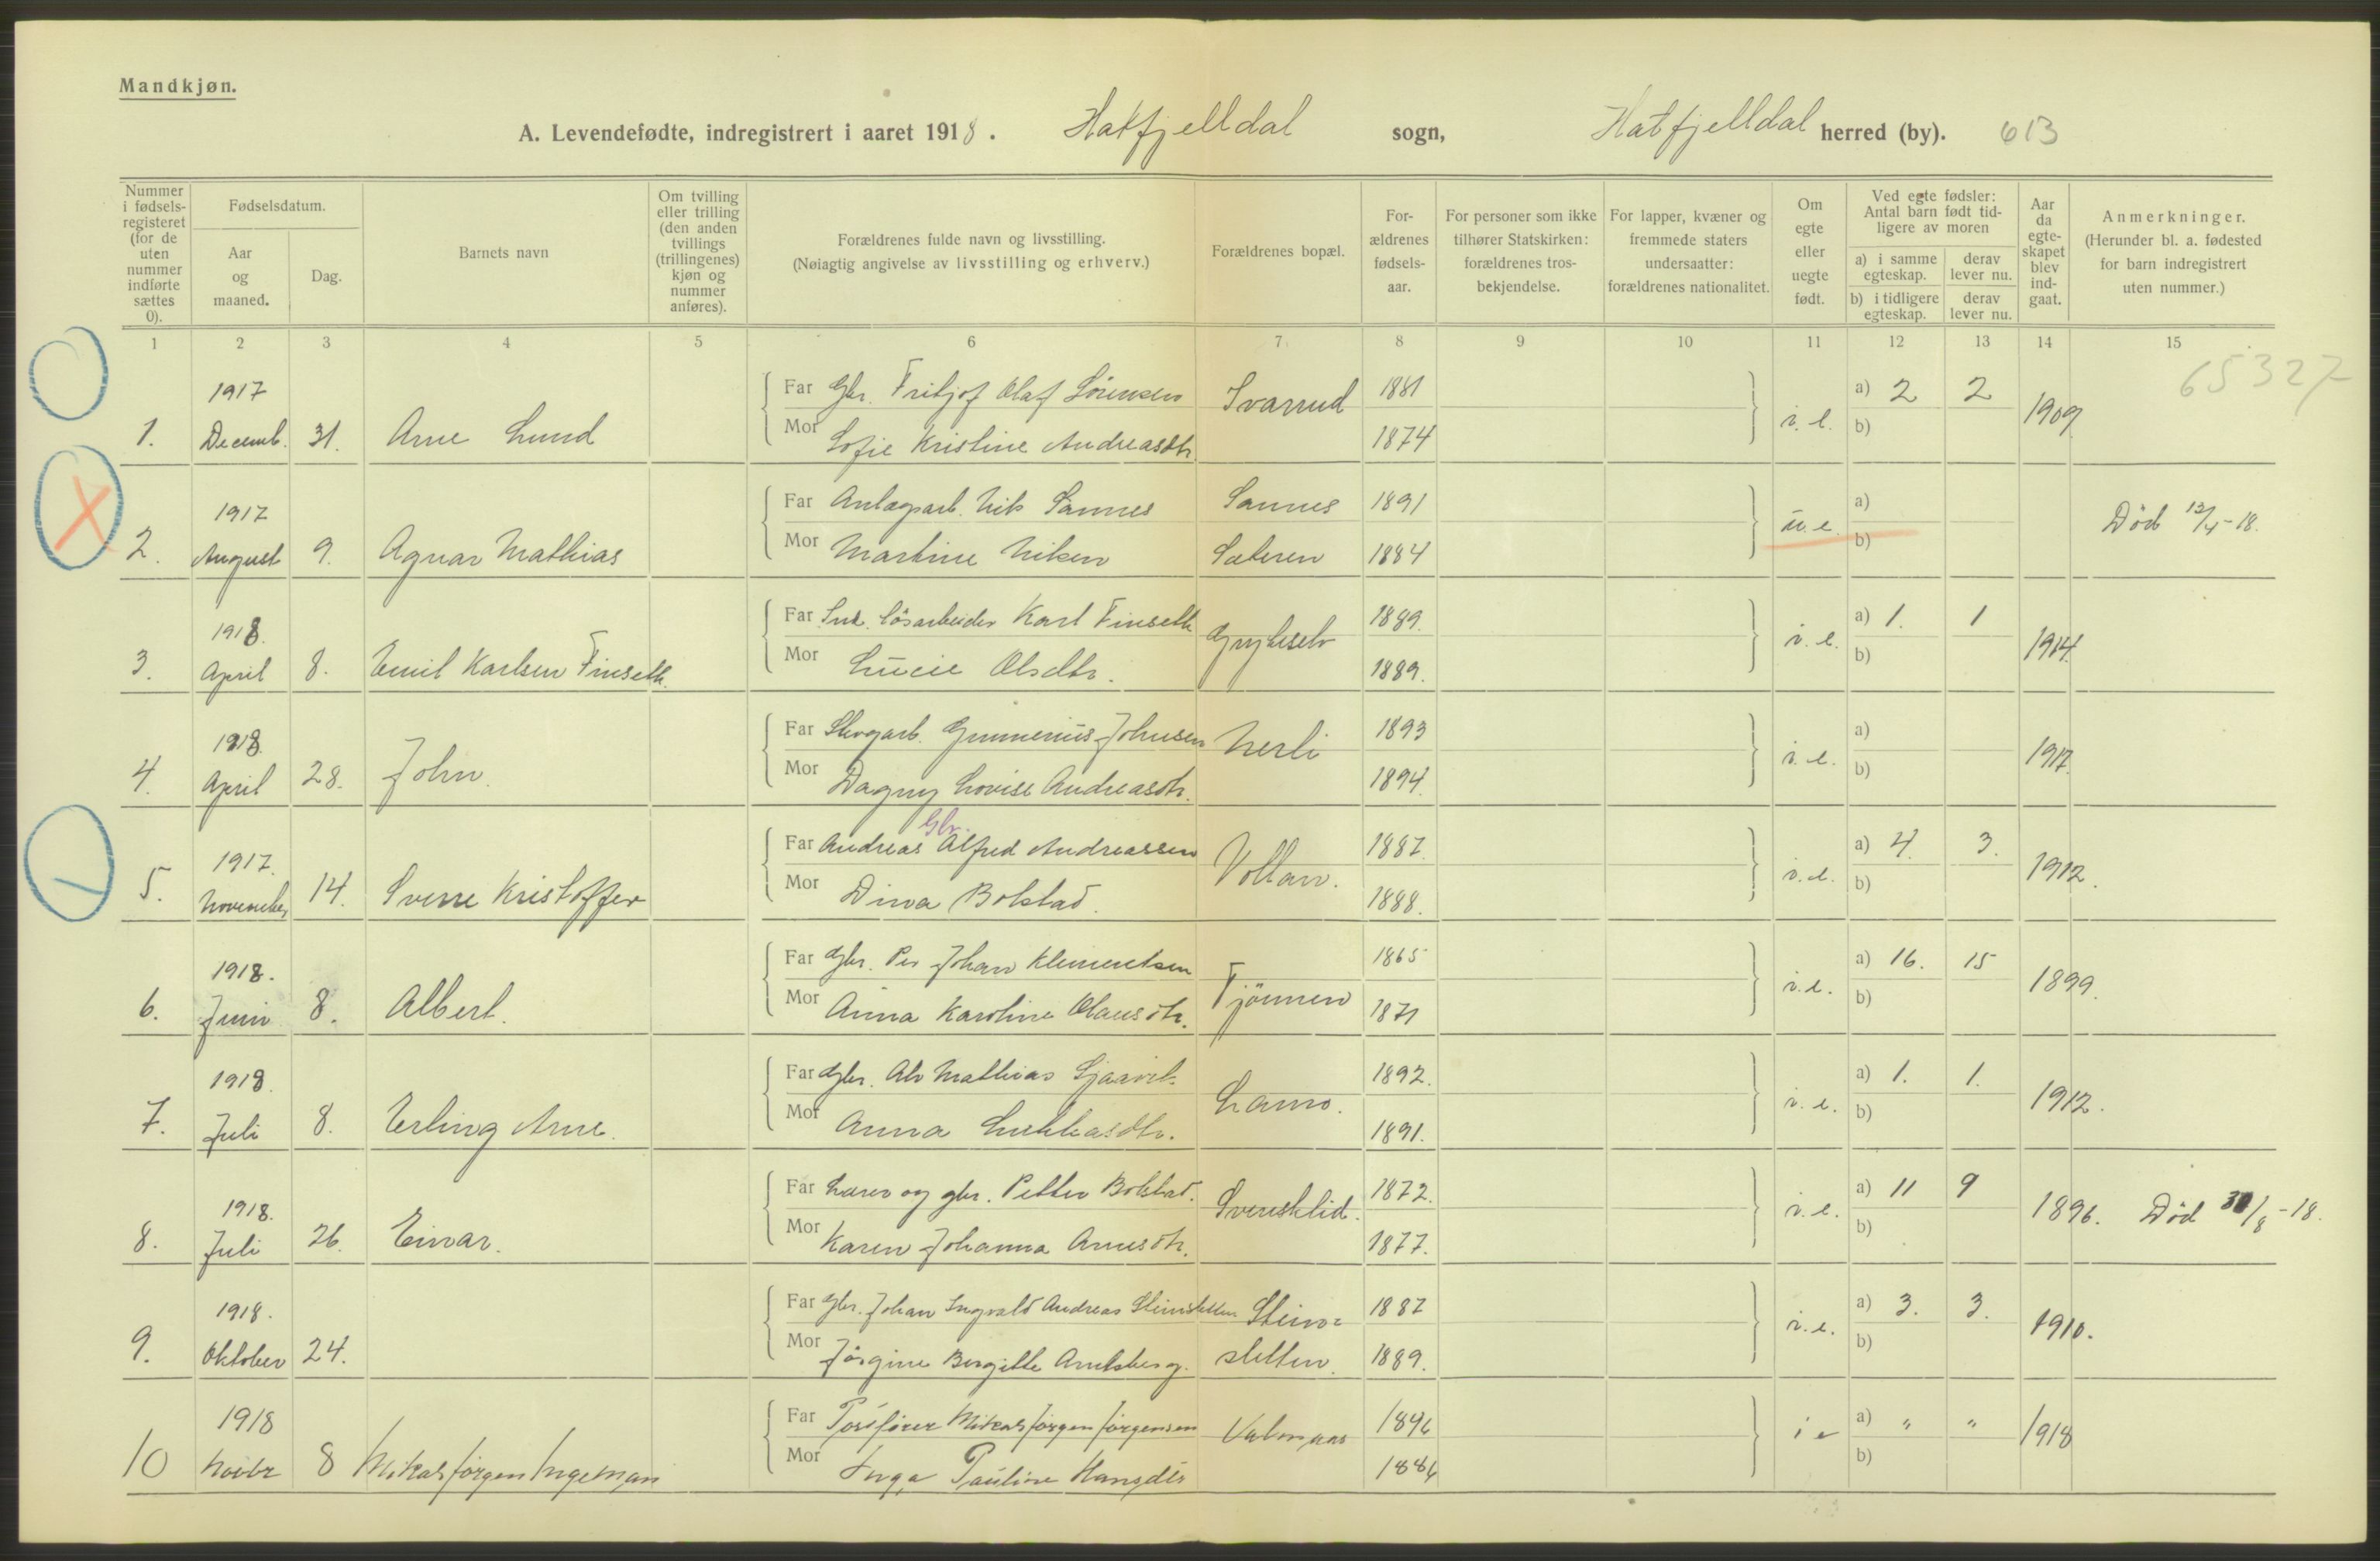 Mandkjøn.
A. Levendefødte, indregistrert i aaret 1918. Hatfjelldal sogn, Hatfjelldal herred (by). 613
Nummer i fødsels-registeret (for de uten nummer indførte sættes 0).
Fødselsdatum.
Aar og maaned.
Dag.
Barnets navn
Om tvilling eller trilling (den anden tvillings (trillingenes) kjøn og nummer anføres).
Forældrenes fulde navn og livsstilling.
(Nøiagtig angivelse av livsstilling og erhverv.)
Forældrenes bopæl.
For-ældrenes fødsels-aar.
For personer som ikke tilhører Statskirken: forældrenes tros-bekjendelse.
For lapper, kvæner og fremmede staters undersaatter: forældrenes nationalitet.
Om egte eller uegte født.
Ved egte fødsler: Antal barn født tid-ligere av moren
a) i samme egteskap.
derav lever nu.
b) i tidligere egteskap.
derav lever nu.
Aar da egte-skapet blev ind-gaat.
Anmerkninger.
(Herunder bl. a. fødested for barn indregistrert uten nummer.)
1 2 3 4 5 6 7 8 9 10 11 12 13 14 15
65327
1. 1917 Decemb. 31. Arne Lund
Far Gbr. Fritjof Olaf Sörensen Svarrud 1881
Mor Sofie Kristine Andreasdtr. 1874
i. e. a) 2 2 b) 1909
2. 1917 August 9. Agnar Mathias
Far Anlægsarb. Nils Sannes Sannes 1891
Mor Martine Nilsen Sæteren 1884
u. e. a) b) Död 12/4-18.
3. 1918. April 8. Emil Karlsen Finseth.
Far Ind. lösarbeider Karl Finseth 1889.
Mor Lucie Olsdtr. 1889.
i. e. a) 1. 1 b) 1914.
4. 1918. April 28. John.
Far Skogarb. Gunnerius Johnsen Nerli 1893
Mor Dagny Lovise Andreasdtr. 1894.
i. e. a) b) 1917.
5. 1917. November 14. Sverre Kristoffer
Gbr.
Far Andreas Alfred Andreassen Vollan. 1887.
Mor Dina Bolstad. 1888.
i. e. a) 4. 3. b) 1912.
6. 1918. Juni 8. Albert.
Far Gbr. Per Johan Klementsen Tjönnen 1865
Mor Anna Karoline Olausdtr. 1871
i. e. a) 16. 15 b) 1899.
7. 1918. Juli 8. Erling Arne.
Far Gbr. Mathias 1892.
Mor Anna Lukkasdtr. 1891.
i. e. a) 1. 1. b) 1912.
8. 1918. Juli 26. Einar.
Far Lærer og gbr. Petter Bolstad. Svensklid. 1872.
Mor Karen Johanna Arnesdtr. 1877.
i. e. a) 11 9 b) 1896. Död 30/8-18.
9. 1918. Oktober 24.
Far Gbr. Johan Ingvald Andreas Steinsletten Stein= 1887
Mor Jörgine Bergitte Arntsberg. sletten. 1889.
i. e. a) 3. 3. b) 1910.
10 1918 Novbr 8 Mikal Jörgen Ingeman
Far Postförer Mikal Jörgen Jörgensen 1896
Mor Inga Pauline Hansdtr 1886
i e a) " " b) 1918